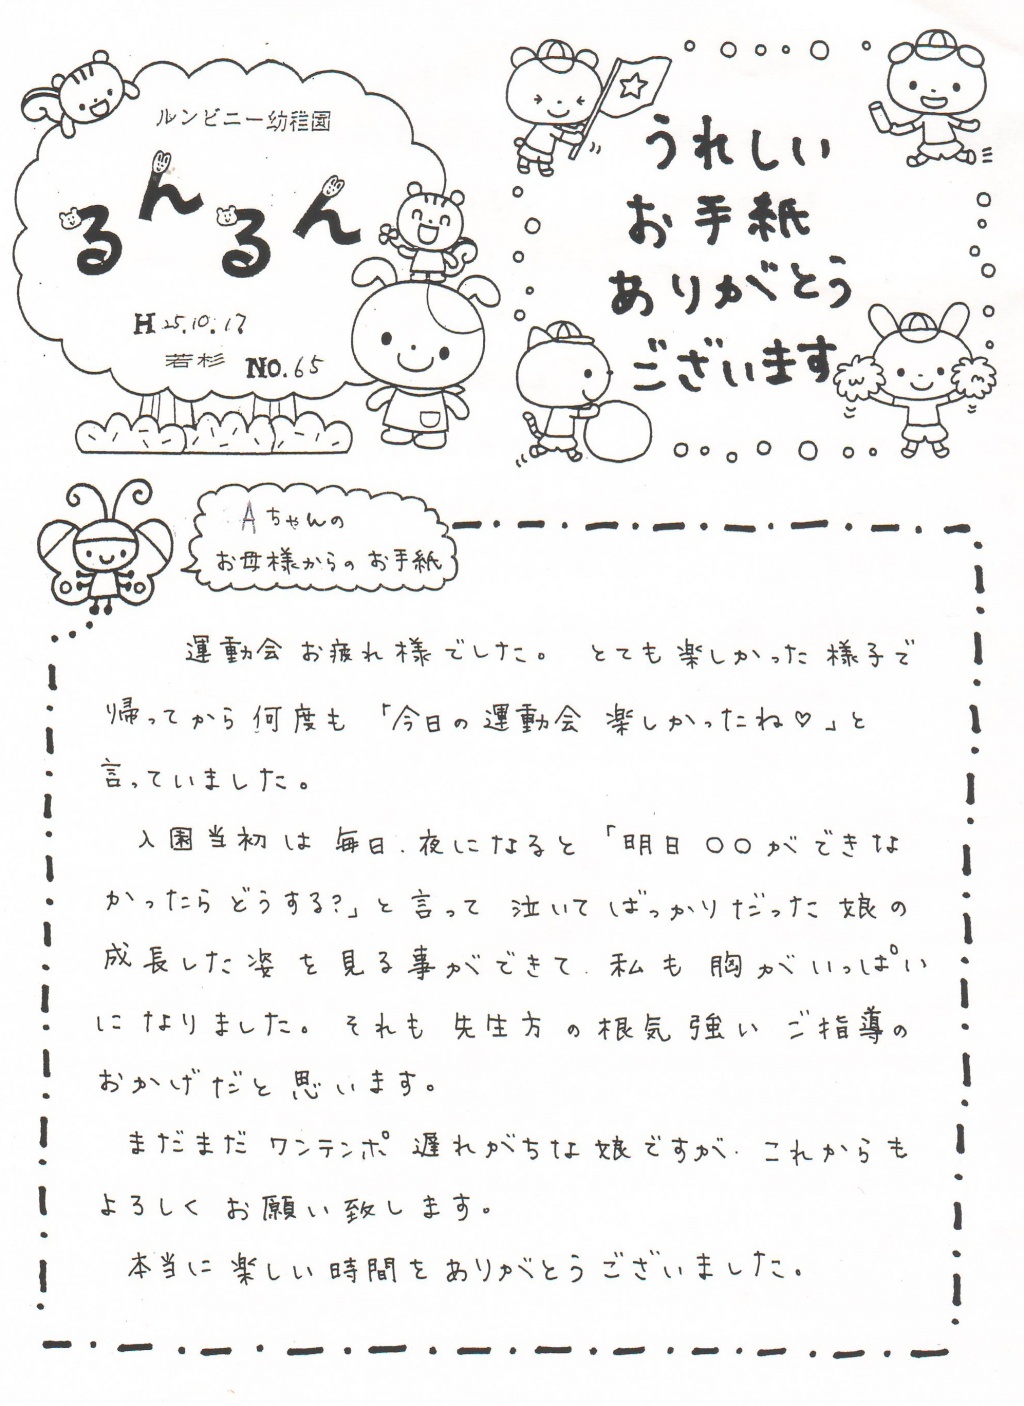 ルンビニー幼稚園
るんるん
H25.10.17
若杉 No.65
うれしい
お手紙
ありがとう
ございます
Aちゃんの
お母様からのお手紙
運動会お疲れ様でした。 とても楽しかった様子で
帰ってから何度も「今日の運動会楽しかったね♡」と
言っていました。
入園当初は毎日、夜になると「明日〇〇ができな
かったらどうする?」と言って泣いてばっかりだった娘の
成長した姿を見る事ができて、私も胸がいっぱい
になりました。それも先生方の根気強いご指導の
おかげだと思います。
まだまだワンテンポ遅れがちな娘ですが、これからも
よろしくお願い致します。
本当に楽しい時間をありがとうございました。